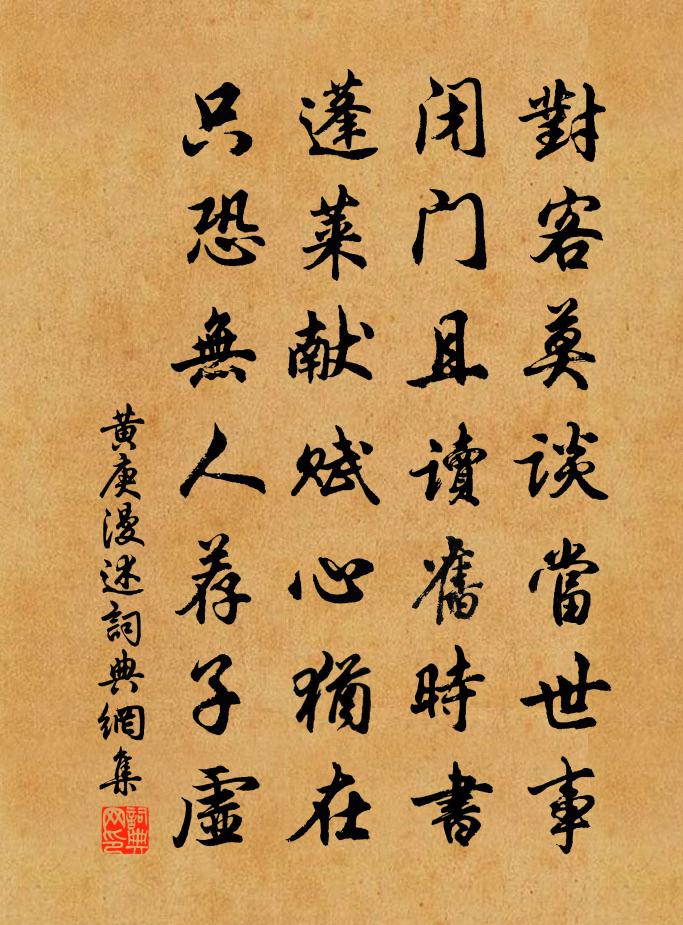 對客莫談當世事
闭门且讀舊時書
蓬莱献赋心猶在
只恐無人荐子虛
黄庚漫述詞典網集
詞典网印